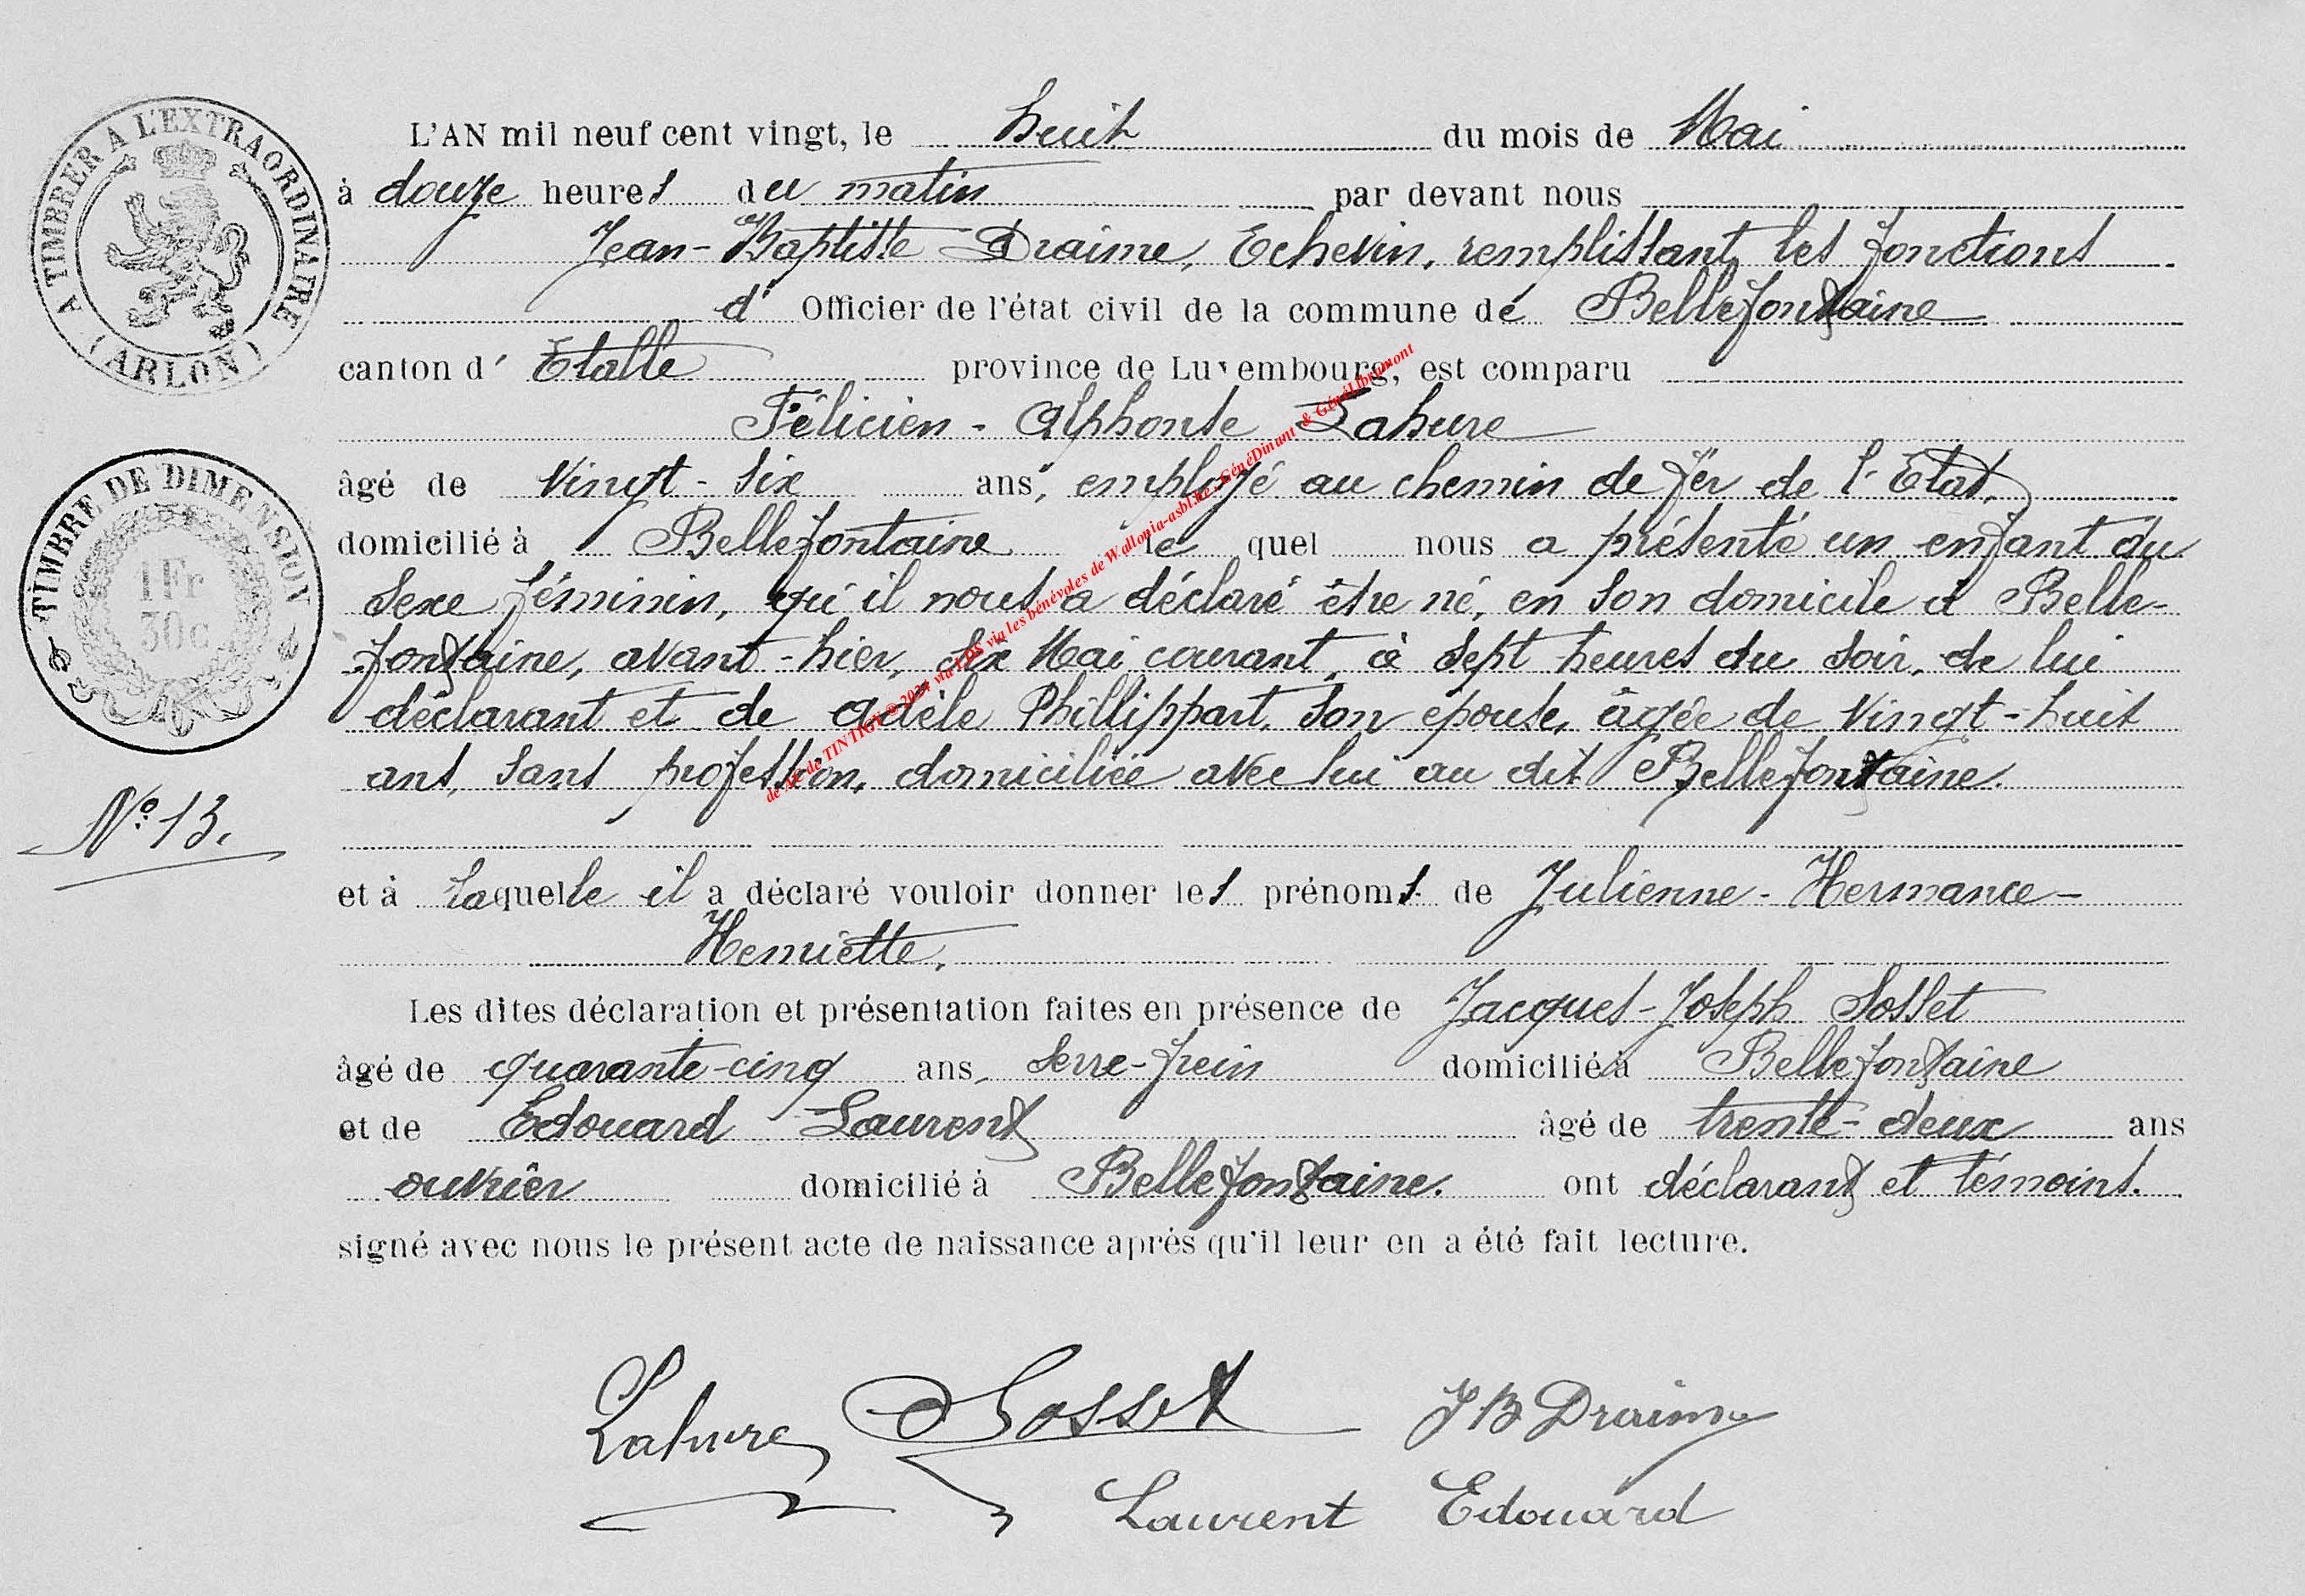 A TIMBRER A L'EXTRAORDINAIRE
(ARLON)
TIMBRE DE DIMENSION
1 Fr
30 c
N° 13.
L'AN mil neuf cent vingt, le huit du mois de Mai
à douze heures du matin par devant nous
Jean-Baptiste Draime, Echevin, remplissant les fonctions
d' Officier de l'état civil de la commune de Bellefontaine
canton d' Etalle province de Luxembourg, est comparu
Félicien-Alphonse Lahure
âgé de vingt-six ans, employé au chemin de fer de l'Etat,
domicilié à Bellefontaine le quel nous a présenté un enfant du
sexe féminin, qu'il nous a déclaré être né, en son domicile à Belle-
fontaine, avant-hier, six Mai courant, à sept heures du soir, de lui
déclarant et de Adèle Phillippart, son épouse, âgée de vingt-huit
ans, sans profession, domiciliée avec lui au dit Bellefontaine.
et à laquelle il a déclaré vouloir donner les prénoms de Julienne-Hermance-
Henriette.
Les dites déclaration et présentation faites en présence de Jacques-Joseph Sosset
âgé de quarante-cinq ans, serre-frein domicilié à Bellefontaine
et de Edouard Laurent âgé de trente-deux ans
ouvrier domicilié à Bellefontaine. ont déclarant et témoins.
signé avec nous le présent acte de naissance après qu'il leur en a été fait lecture.
Lahure Sosset J B Draime
Laurent Edouard
de TINTIGNY © 2024 via LDS via les bénévoles de Wallonia-asbl.be, GénéDinant & GénéLibramont